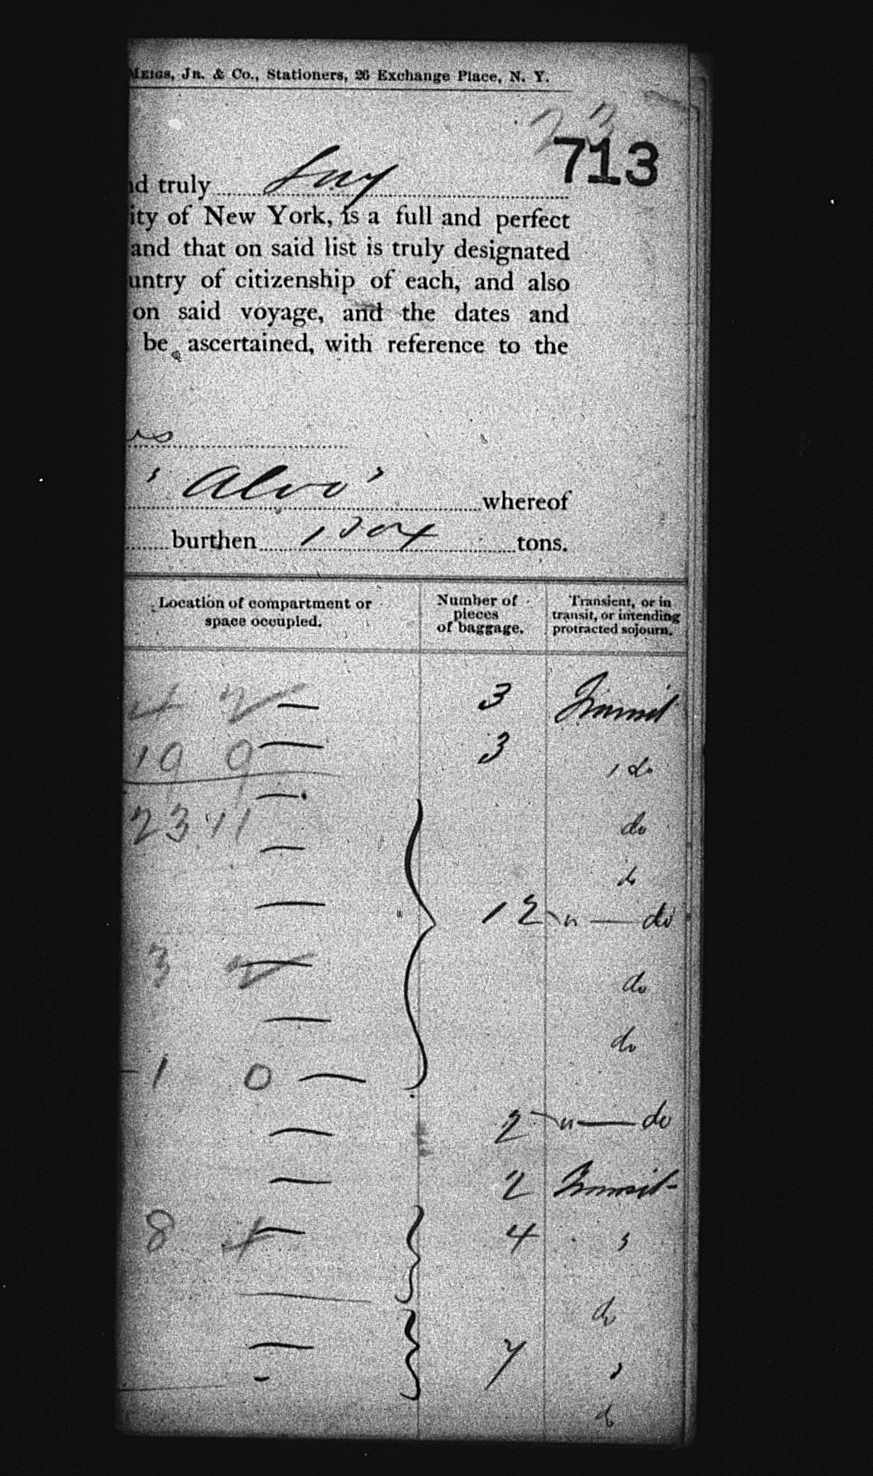 Meigs, Jr. & Co., Stationers, 26 Exchange Place, N. Y.
23
713
nd truly say
ity of New York, is a full and perfect
and that on said list is truly designated
untry of citizenship of each, and also
on said voyage, and the dates and
be ascertained, with reference to the
"Alvo" whereof
burthen tons.
Location of compartment or space occupied. Number of pieces of baggage. Transient, or in transit, or intending protracted sojourn.
4 2 — 3 Transit
19 9 — 3 " do
23 11 — do
— do
— 12 " — do
3 2 — do
— do
1 0 —
— 2 " — do
— 2 Transit
8 4 — 4 "
do
— 7 "
- do